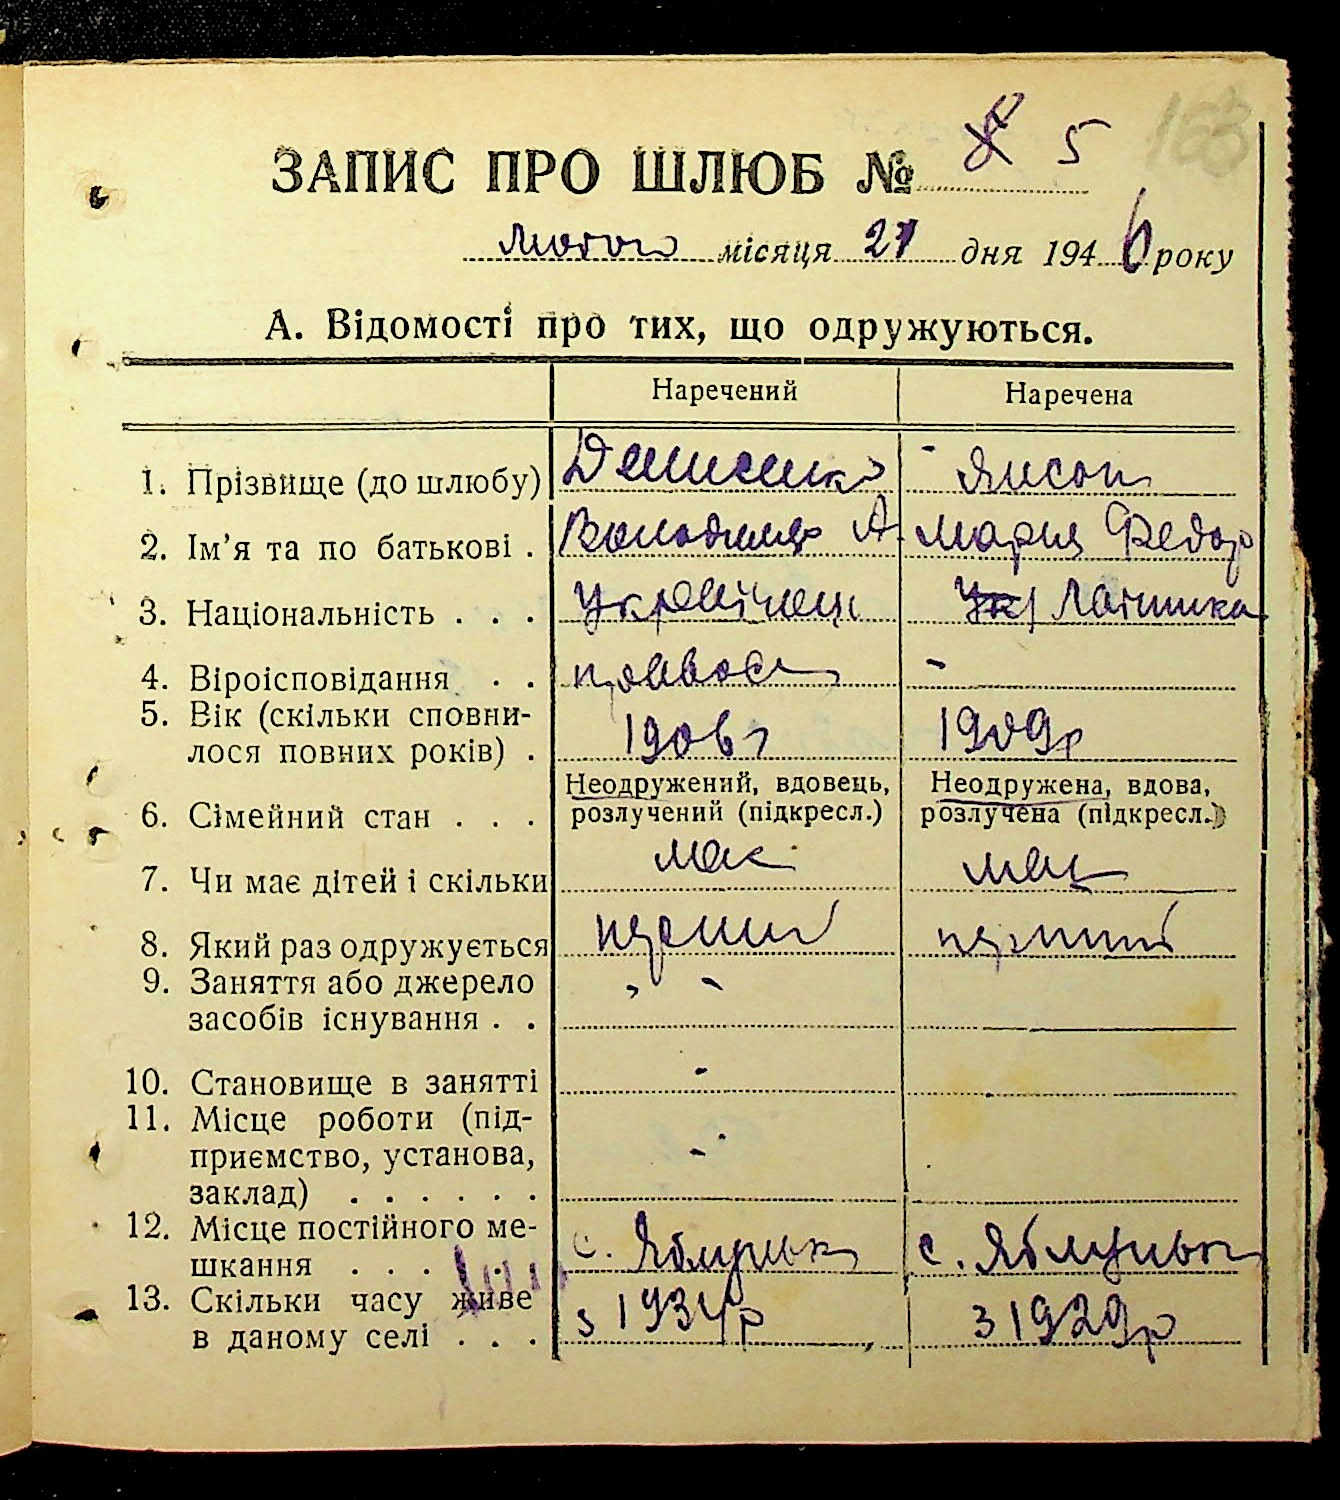 163
ЗАПИС ПРО ШЛЮБ № 5
лютого місяця 21 дня 1946 року
А. Відомості про тих, що одружуються.
Наречений Наречена
1. Прізвище (до шлюбу) Денисенко Янсон
2. Ім’я та по батькові . Володимир А. Мария Федор
3. Національність . . . Українець Укр Латишка
4. Віроісповідання . . правосл -
5. Вік (скільки сповни-
лося повних років) . 1906 г 1909 р
Неодружений, вдовець, Неодружена, вдова,
6. Сімейний стан . . . розлучений (підкресл.) розлучена (підкресл.)
7. Чи має дітей і скільки має
8. Який раз одружується перший перший
9. Заняття або джерело
засобів існування . . -
10. Становище в занятті -
11. Місце роботи (під-
приємство, установа, -
заклад) . . . . . .
12. Місце постійного ме-
шкання . . . . . с. с.
13. Скільки часу живе
в даному селі . . . з 1934 р з 1929 р